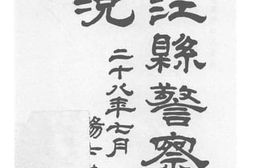 江縣警察
況
二十八年七月
楊士